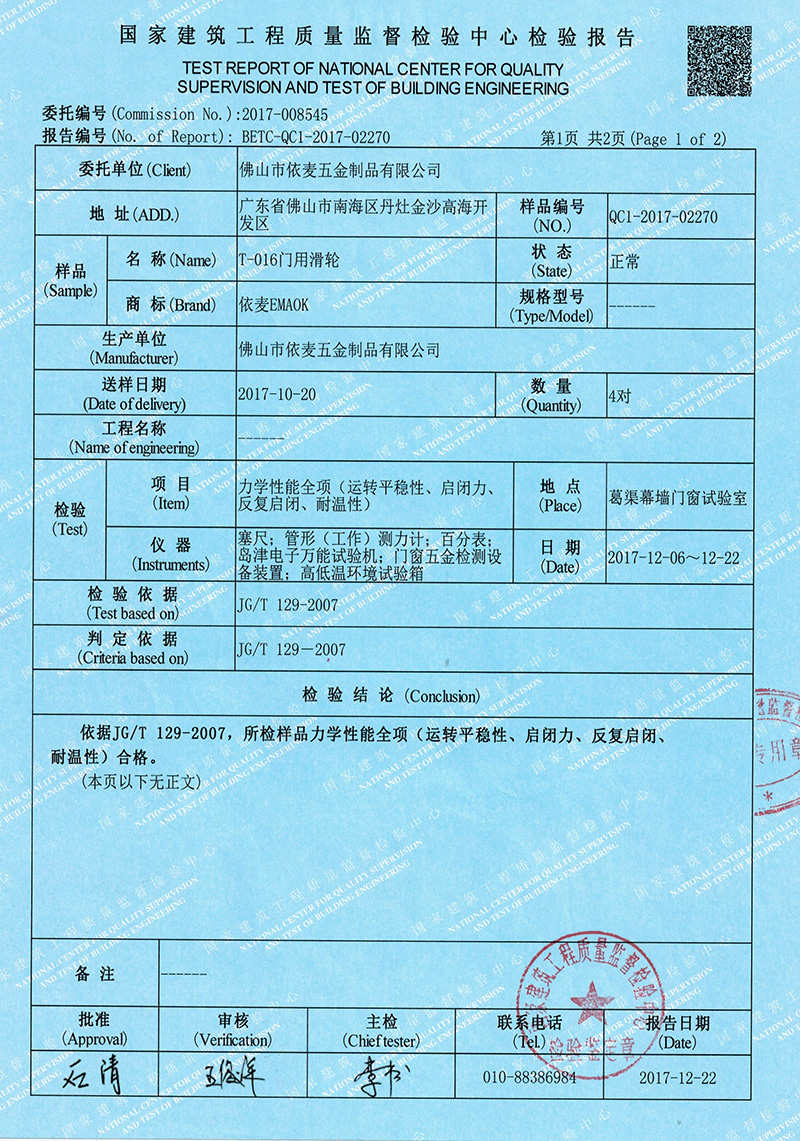 国家建筑工程质量监督检验中心检验报告
TEST REPORT OF NATIONAL CENTER FOR QUALITY
SUPERVISION AND TEST OF BUILDING ENGINEERING
委托编号(Commission No.):2017-008545
报告编号(No. of Report): BETC-QC1-2017-02270 第1页 共2页(Page 1 of 2)
委托单位(Client) 佛山市依麦五金制品有限公司
地 址(ADD.) 广东省佛山市南海区丹灶金沙高海开
发区
样品编号
(NO.)
QC1-2017-02270
样品
(Sample)
名 称(Name) T-016门用滑轮
状 态
(State)
正常
商 标(Brand) 依麦EMAOK
规格型号
(Type/Model)
------
生产单位
(Manufacturer)
佛山市依麦五金制品有限公司
送样日期
(Date of delivery)
2017-10-20
数 量
(Quantity)
4对
工程名称
(Name of engineering)
------
检验
(Test)
项 目
(Item)
力学性能全项（运转平稳性、启闭力、
反复启闭、耐温性）
地 点
(Place)
葛渠幕墙门窗试验室
仪 器
(Instruments)
塞尺；管形（工作）测力计；百分表；
岛津电子万能试验机；门窗五金检测设
备装置；高低温环境试验箱
日 期
(Date)
2017-12-06～12-22
检 验 依 据
(Test based on)
JG/T 129-2007
判 定 依 据
(Criteria based on)
JG/T 129－2007
检 验 结 论 (Conclusion)
依据JG/T 129-2007，所检样品力学性能全项（运转平稳性、启闭力、反复启闭、
耐温性）合格。
(本页以下无正文)
备 注 ------
批准
(Approval)
审核
(Verification)
主检
(Chief tester)
联系电话
(Tel.)
报告日期
(Date)
石清
李松
010-88386984
2017-12-22
建筑工程质量监督检验中心
检验鉴定章
专用章
国家建筑工程质量监督检验中心
NATIONAL CENTER FOR QUALITY SUPERVISION
AND TEST OF BUILDING ENGINEERING